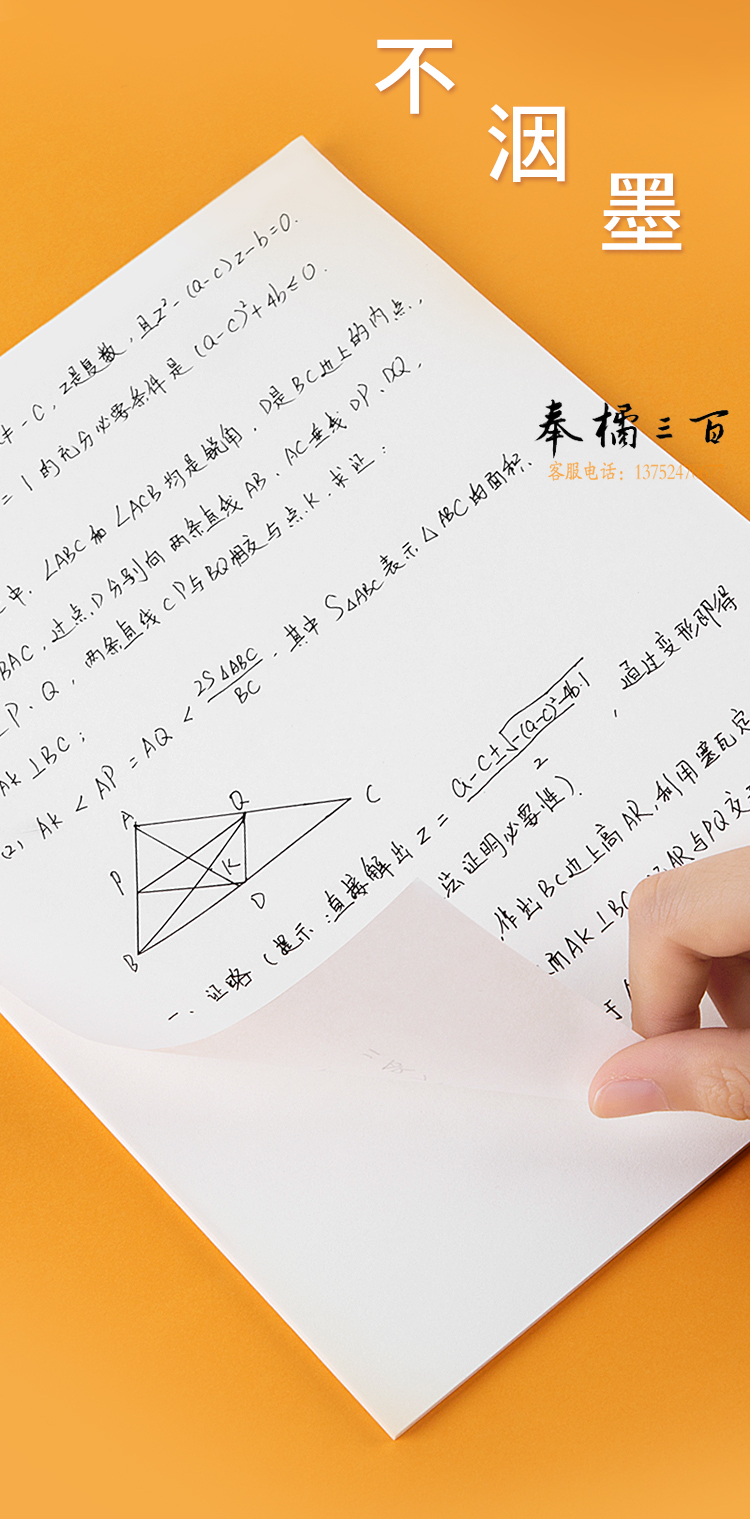 不
洇
墨
≠-C，z是复数，且z²-(a-c)z-b=0.
=1的充分必要条件是(a-c)²+4b≤0.
中，∠ABC和∠ACB均是锐角，D是BC边上的内点，
BAC，过点D分别向两条直线AB、AC垂线DP、DQ，
P、Q，两条直线CP与BQ相交与点K. 求证：
AK⊥BC；
(2) AK < AP = AQ < 2S△ABC/BC，其中S△ABC表示△ABC的面积.
奉橘三百
客服电话：137524
A
Q
C
P
K
D
B
一、证略(提示：直接解出z = a-c±√-(a-c)²-4b·i/2，通过变形即得
法证明必要性).
作出BC边上高AR，利用塞瓦定
而AK⊥BC
AR与PQ交
于